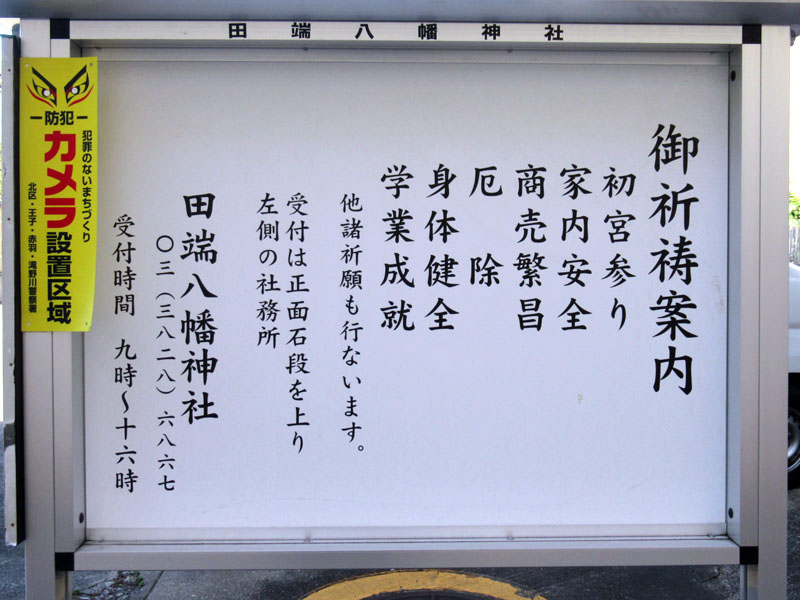 田端八幡神社
御祈祷案内
初宮参り
家内安全
商売繁昌
厄除
身体健全
学業成就
他諸祈願も行ないます。
受付は正面石段を上り
左側の社務所
田端八幡神社
〇三（三八二八）六八六七
受付時間 九時〜十六時
ー防犯ー
犯罪のないまちづくり
カメラ設置区域
北区・王子・赤羽・滝野川警察署